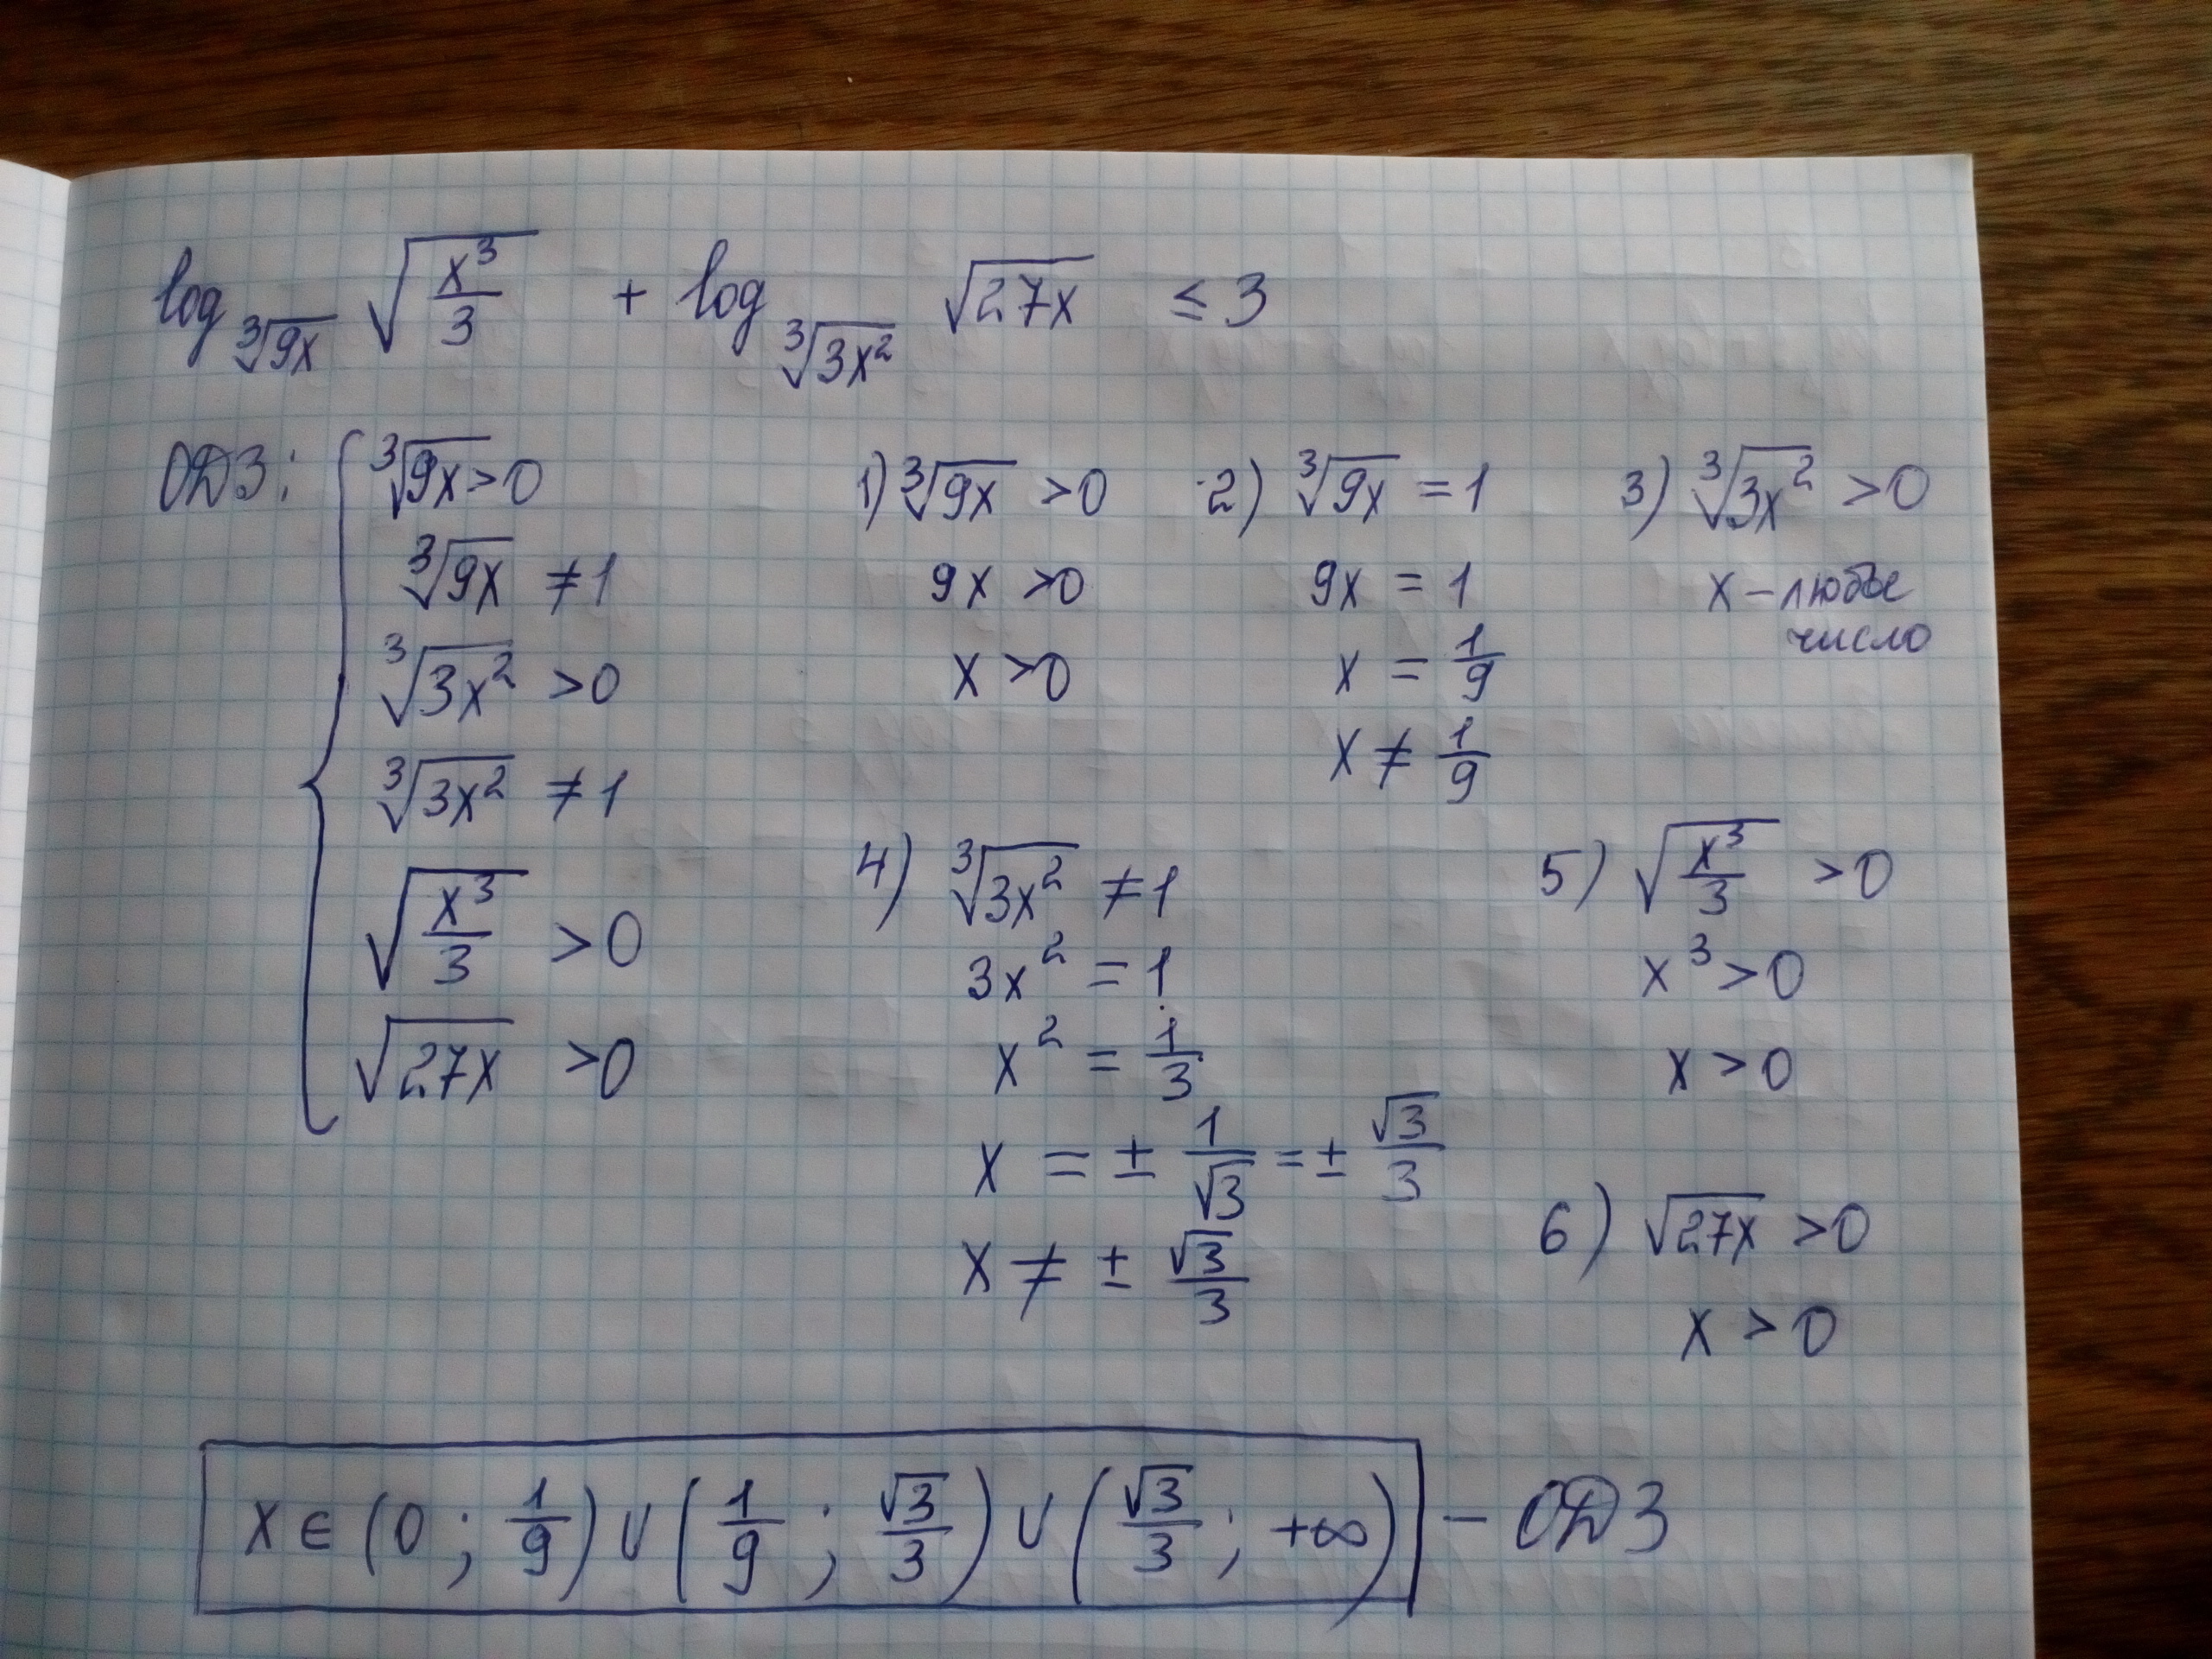 log_{∛(9x)} √(x³/3) + log_{∛(3x²)} √(27x) ≤ 3
ОДЗ:
∛(9x) > 0
∛(9x) ≠ 1
∛(3x²) > 0
∛(3x²) ≠ 1
√(x³/3) > 0
√(27x) > 0
1) ∛(9x) > 0
9x > 0
x > 0
2) ∛(9x) = 1
9x = 1
x = 1/9
x ≠ 1/9
3) ∛(3x²) > 0
x – любое
число
4) ∛(3x²) ≠ 1
3x² = 1
x² = 1/3
x = ± 1/√3 = ± √3/3
x ≠ ± √3/3
5) √(x³/3) > 0
x³ > 0
x > 0
6) √(27x) > 0
x > 0
x ∈ (0 ; 1/9) ∪ (1/9 ; √3/3) ∪ (√3/3 ; +∞) – ОДЗ